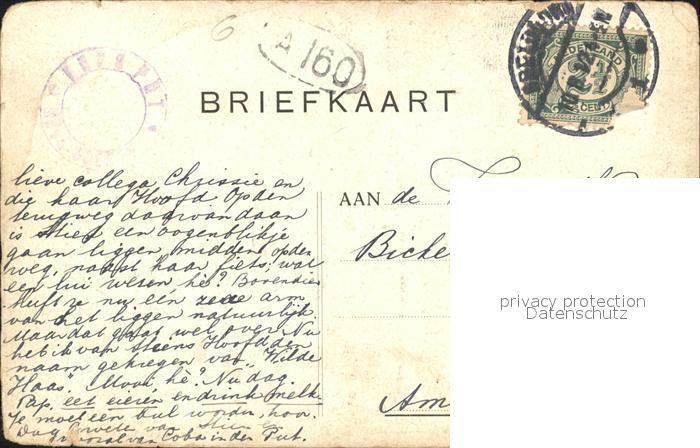 6
A 160
BRIEFKAART
NEDERLAND
2½
CENT
lieve collega Chrissie en
die haar Hoofd. Op den
terugweg daarvandaan
is Stien een oogenblikje
gaan liggen midden op den
weg, naast haar fiets, wat
een lui wezen, hè? Bovendien
heeft ze nu een zeee arm
van het liggen natuurlijk.
Maar dat gaat wel over. Nu
heb ik van Stiens Hoofd den
naam gekregen van "Wilde
Haas". Mooi hè? Nu dag
Pap, eet eieren en drink melk.
Je moet een bul worden, hoor.
Dag van Stien
vooral van Coba in den Put.
AAN de
Biche
Am
privacy protection
Datenschutz